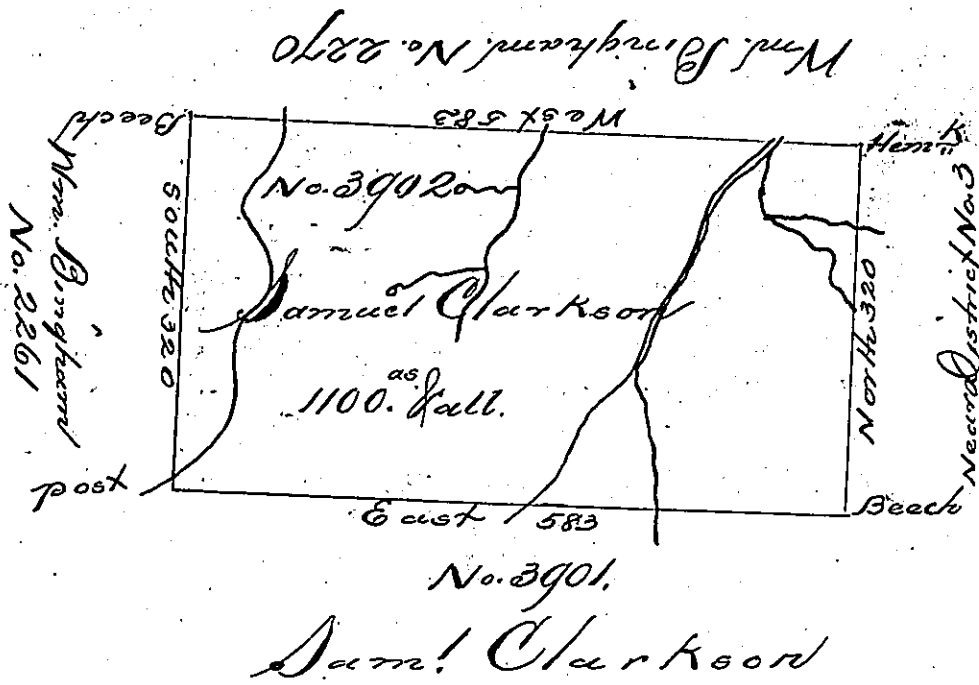 Wm. Bingham. No. 2270
Beech
West 583
Hemk
Wm. Bingham
No. 2261
South 320
No. 3902
Samuel Clarkson
1100.as &all.
North 320
Near District No. 3
Post
East 583
Beech
No. 3901.
Saml Clarkson